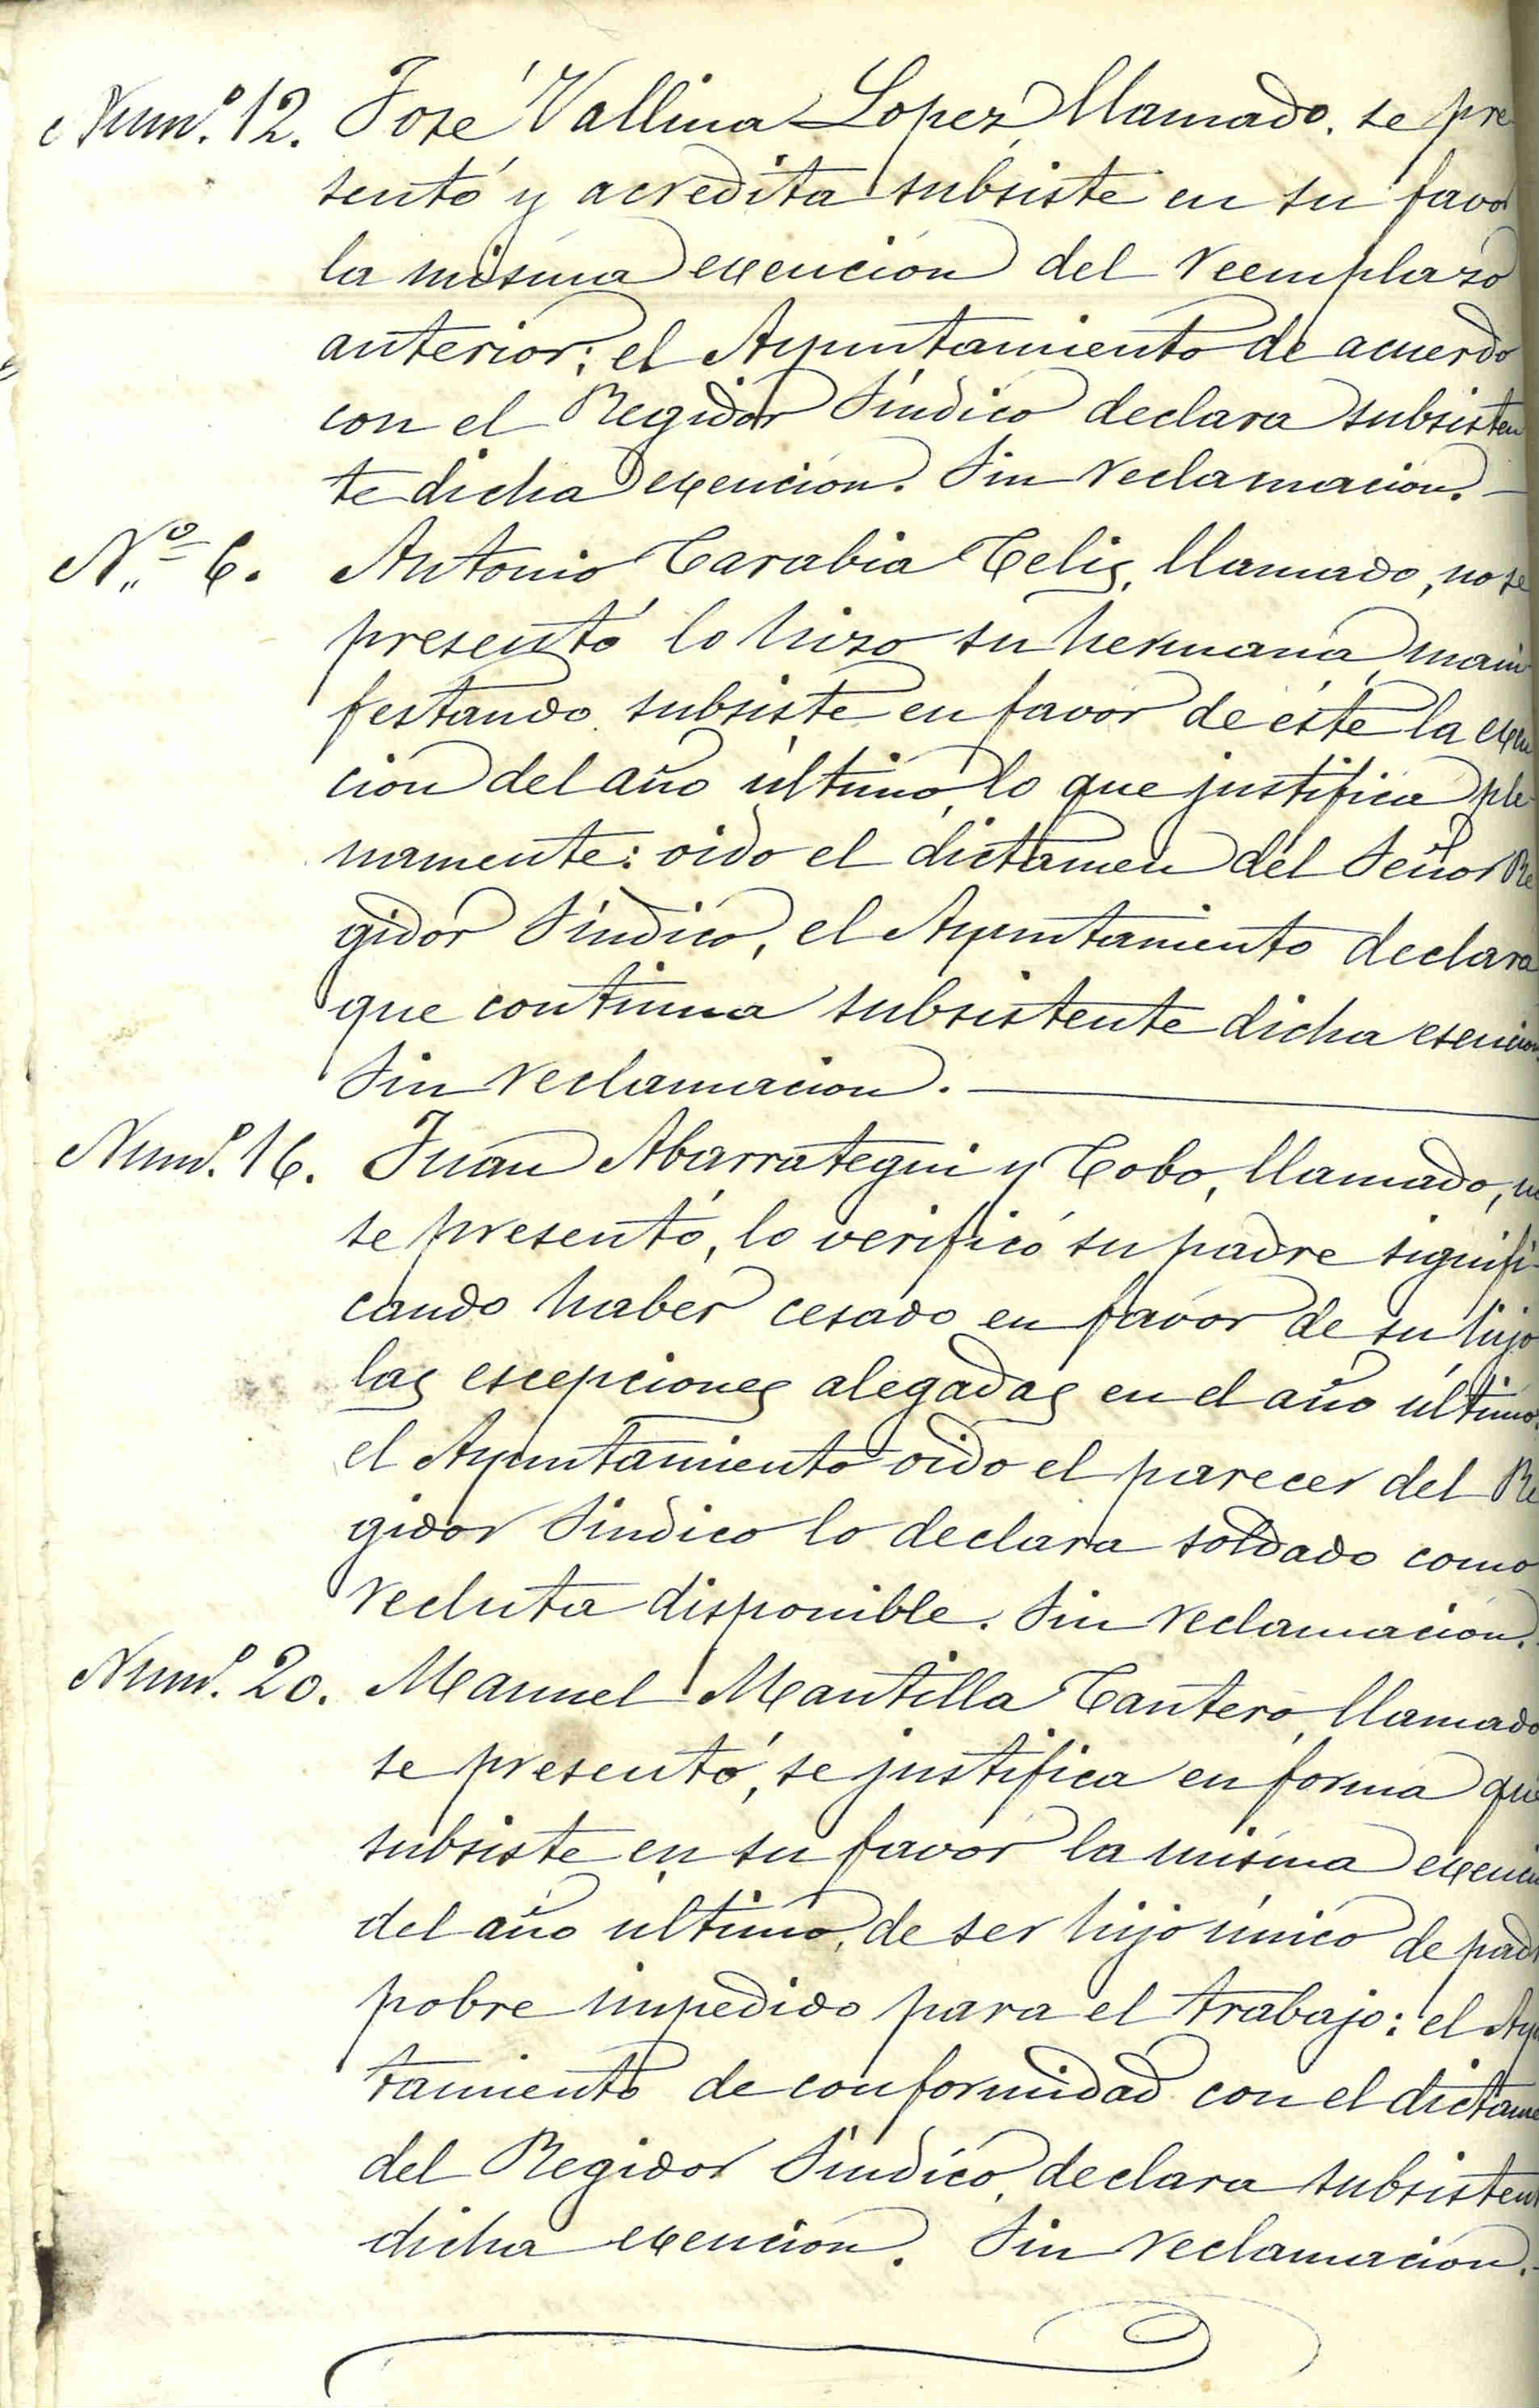 Num.º 12. José Vallina Lopez, llamado, se pre
sentó y acredita subsiste en su favor
la misma exencion del reemplazo
anterior; el Ayuntamiento de acuerdo
con el Regidor Síndico declara subsisten
te dicha exencion. Sin reclamacion.—
N.º 6. Antonio Carabia Celis, llamado, no se
presentó lo hizo su hermana, mani
festando subsiste en favor de éste la exen
cion del año último, lo que justifica ple
namente: oido el dictamen del Señor Re
gidor Síndico, el Ayuntamiento declara
que continua subsistente dicha esencion
Sin reclamacion.—
Num.º 16. Juan Abarrategui y Cobo, llamado, no
se presentó, lo verificó su padre signifi-
cando haber cesado en favor de su hijo
las escepciones alegadas en el año último.
el Ayuntamiento oido el parecer del Re
gidor Sindico lo declara soldado como
recluta disponible. Sin reclamacion.
Num.º 20. Manuel Mantilla Cantero, llamado
se presentó, se justifica en forma que
subsiste en su favor la misma exencion
del año ultimo, de ser hijo único de padre
pobre impedido para el trabajo: el Ayun
tamiento de conformidad con el dictamen
del Regidor Síndico, declara subsistente
dicha exencion. Sin reclamacion.-